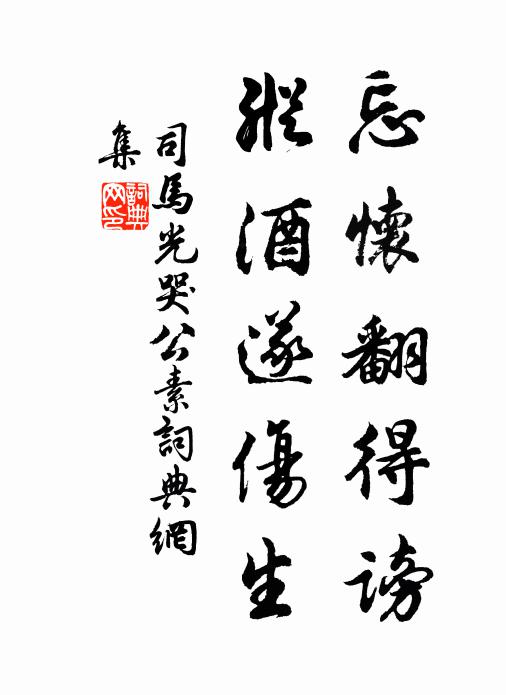 忘懷翻得謗
縱酒遂傷生
司馬光哭公素詞典網
集
詞典
网印